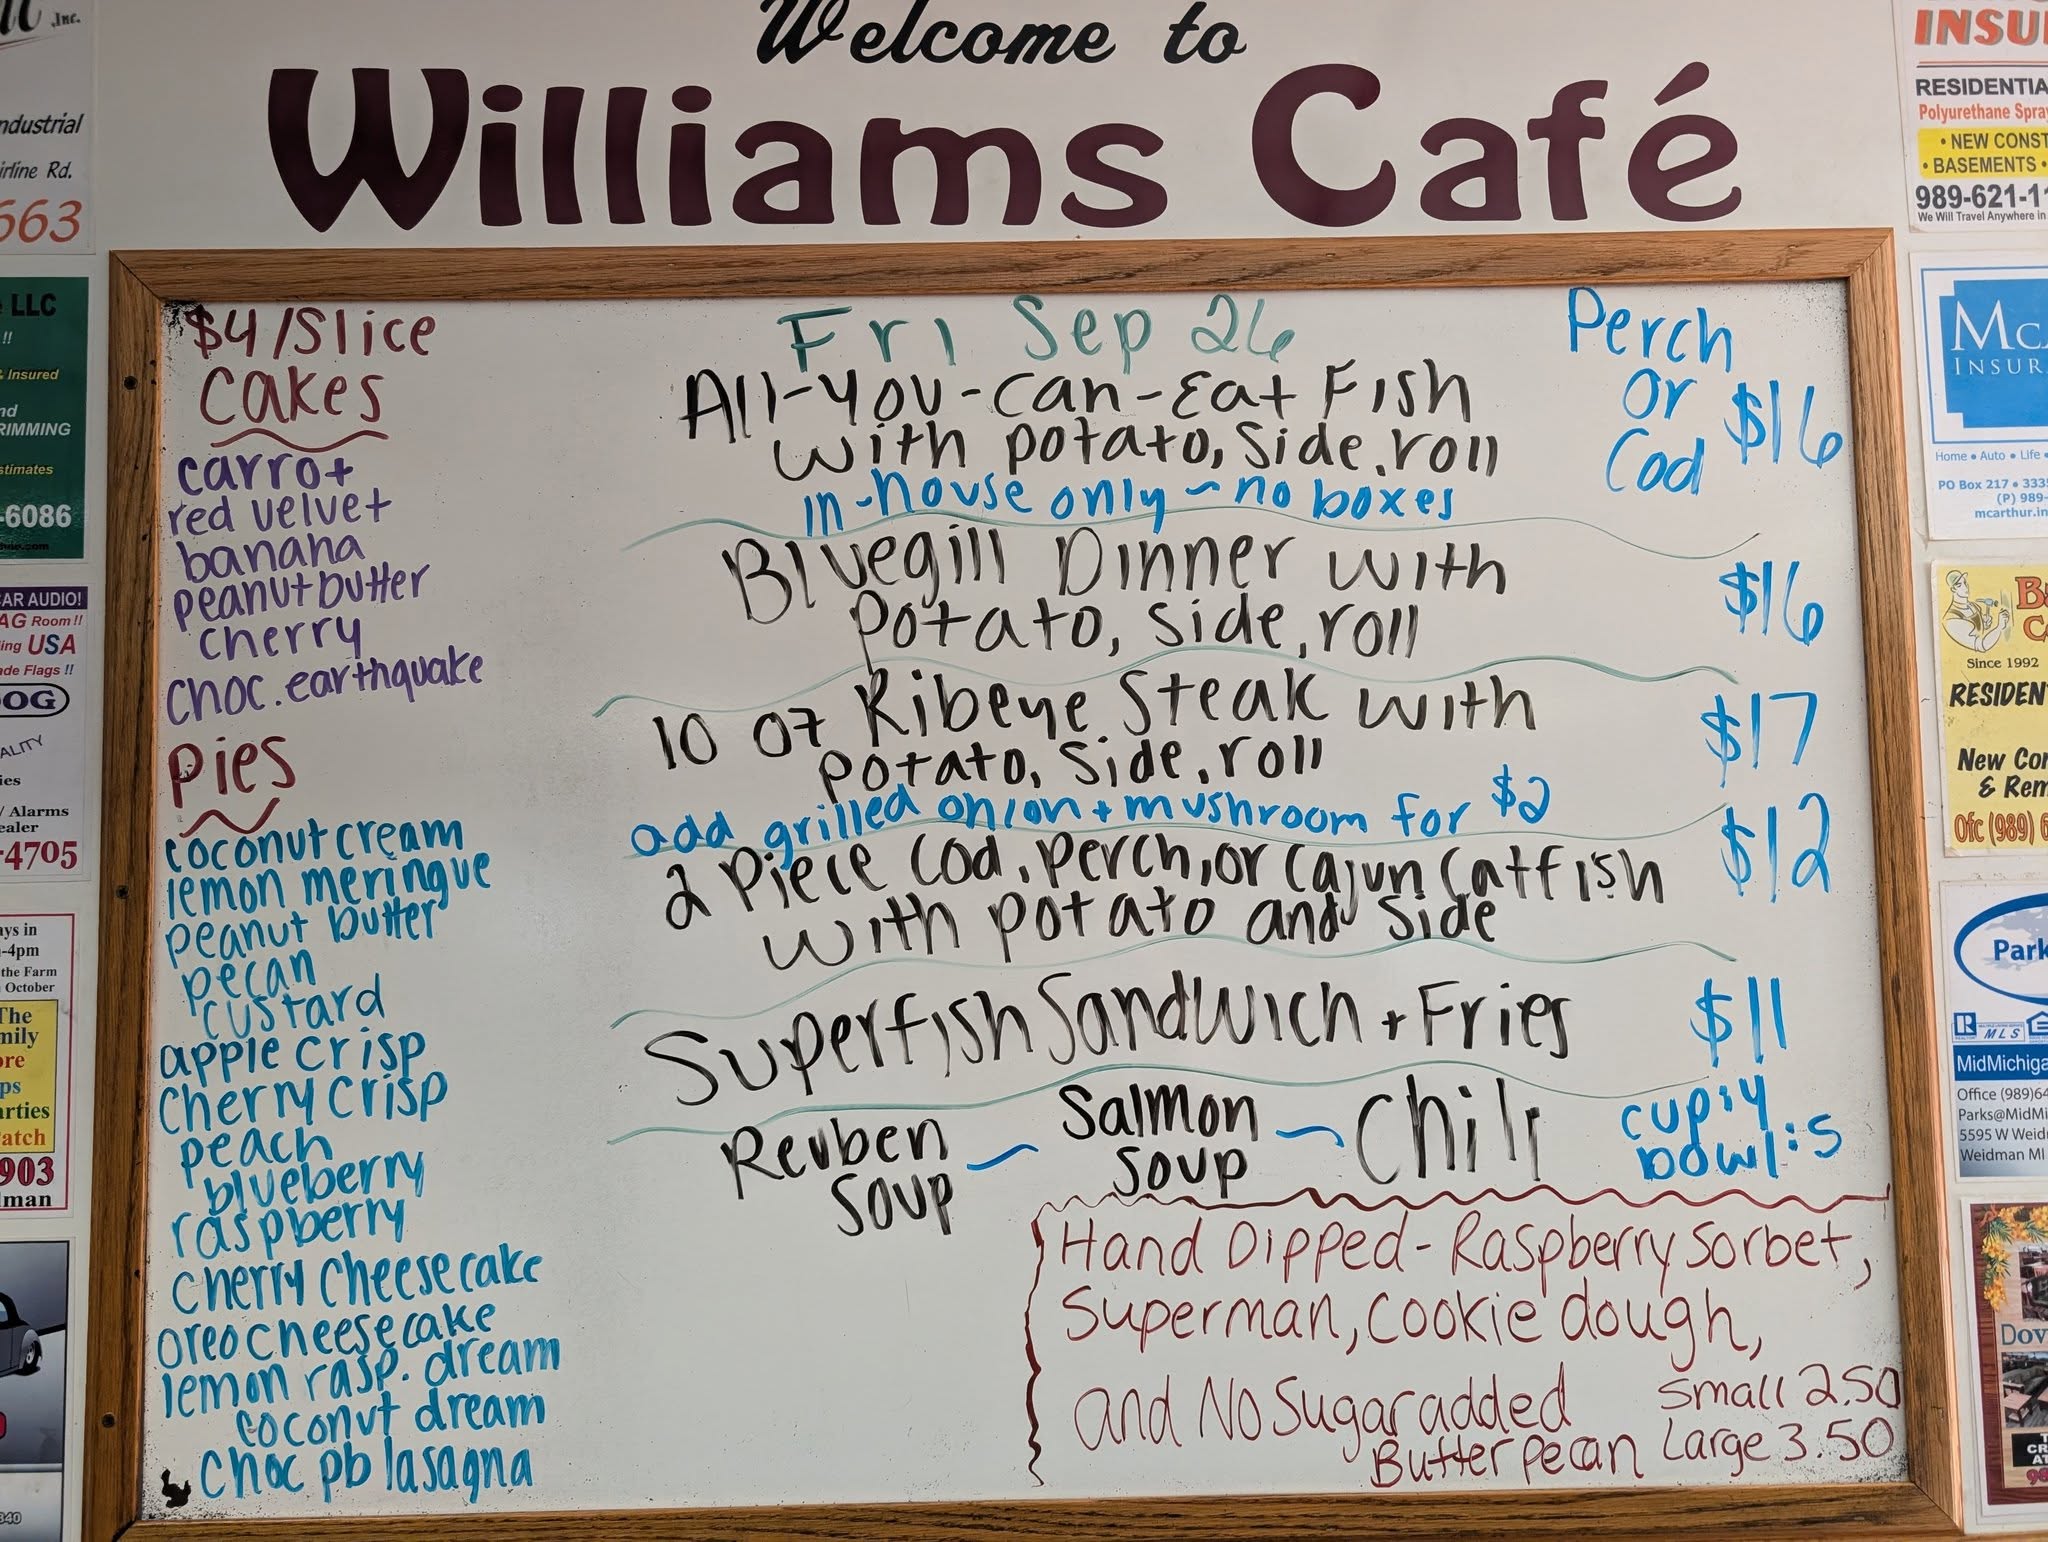 Welcome to
Williams Café
$4/Slice
Cakes
carrot
red velvet
banana
peanut butter
cherry
choc. earthquake
Pies
coconut cream
lemon meringue
peanut butter
pecan
custard
apple crisp
cherry crisp
peach
blueberry
raspberry
cherry cheesecake
oreo cheesecake
lemon rasp. dream
coconut dream
choc pb lasagna
Fri Sep 26
All-you-can-Eat Fish
with potato, side, roll
in-house only ~ no boxes
Perch
or
Cod
$16
Bluegill Dinner with
potato, side, roll
$16
10 oz Ribeye Steak with
potato, side, roll
$17
add grilled onion + mushroom for $2
2 Piece Cod, Perch, or Cajun Catfish
with potato and side
$12
Superfish Sandwich + Fries
$11
Reuben
Soup
~
Salmon
Soup
~
Chili
cup: 4
bowl: 5
Hand Dipped - Raspberry Sorbet,
Superman, cookie dough,
and No Sugar added
Butter pecan
Small 2.50
Large 3.50
, Inc.
ndustrial
irline Rd.
663
LLC
!!
& Insured
nd
RIMMING
stimates
-6086
CAR AUDIO!
AG Room!!
ling USA
ade Flags!!
OG
ALITY
ies
/ Alarms
ealer
-4705
ays in
-4pm
the Farm
October
The
mily
ore
ps
arties
Patch
903
man
340
INSU
RESIDENTIA
Polyurethane Spra
• NEW CONST
• BASEMENTS •
989-621-11
We Will Travel Anywhere in
McA
INSUR
Home • Auto • Life •
PO Box 217 • 333
(P) 989-
mcarthur.in
B
C
Since 1992
RESIDEN
New Con
& Rem
Ofc (989) 6
Park
MLS
MidMichiga
Office (989)64
Parks@MidMi
5595 W Weid
Weidman MI
Dov
T
CR
AT
98